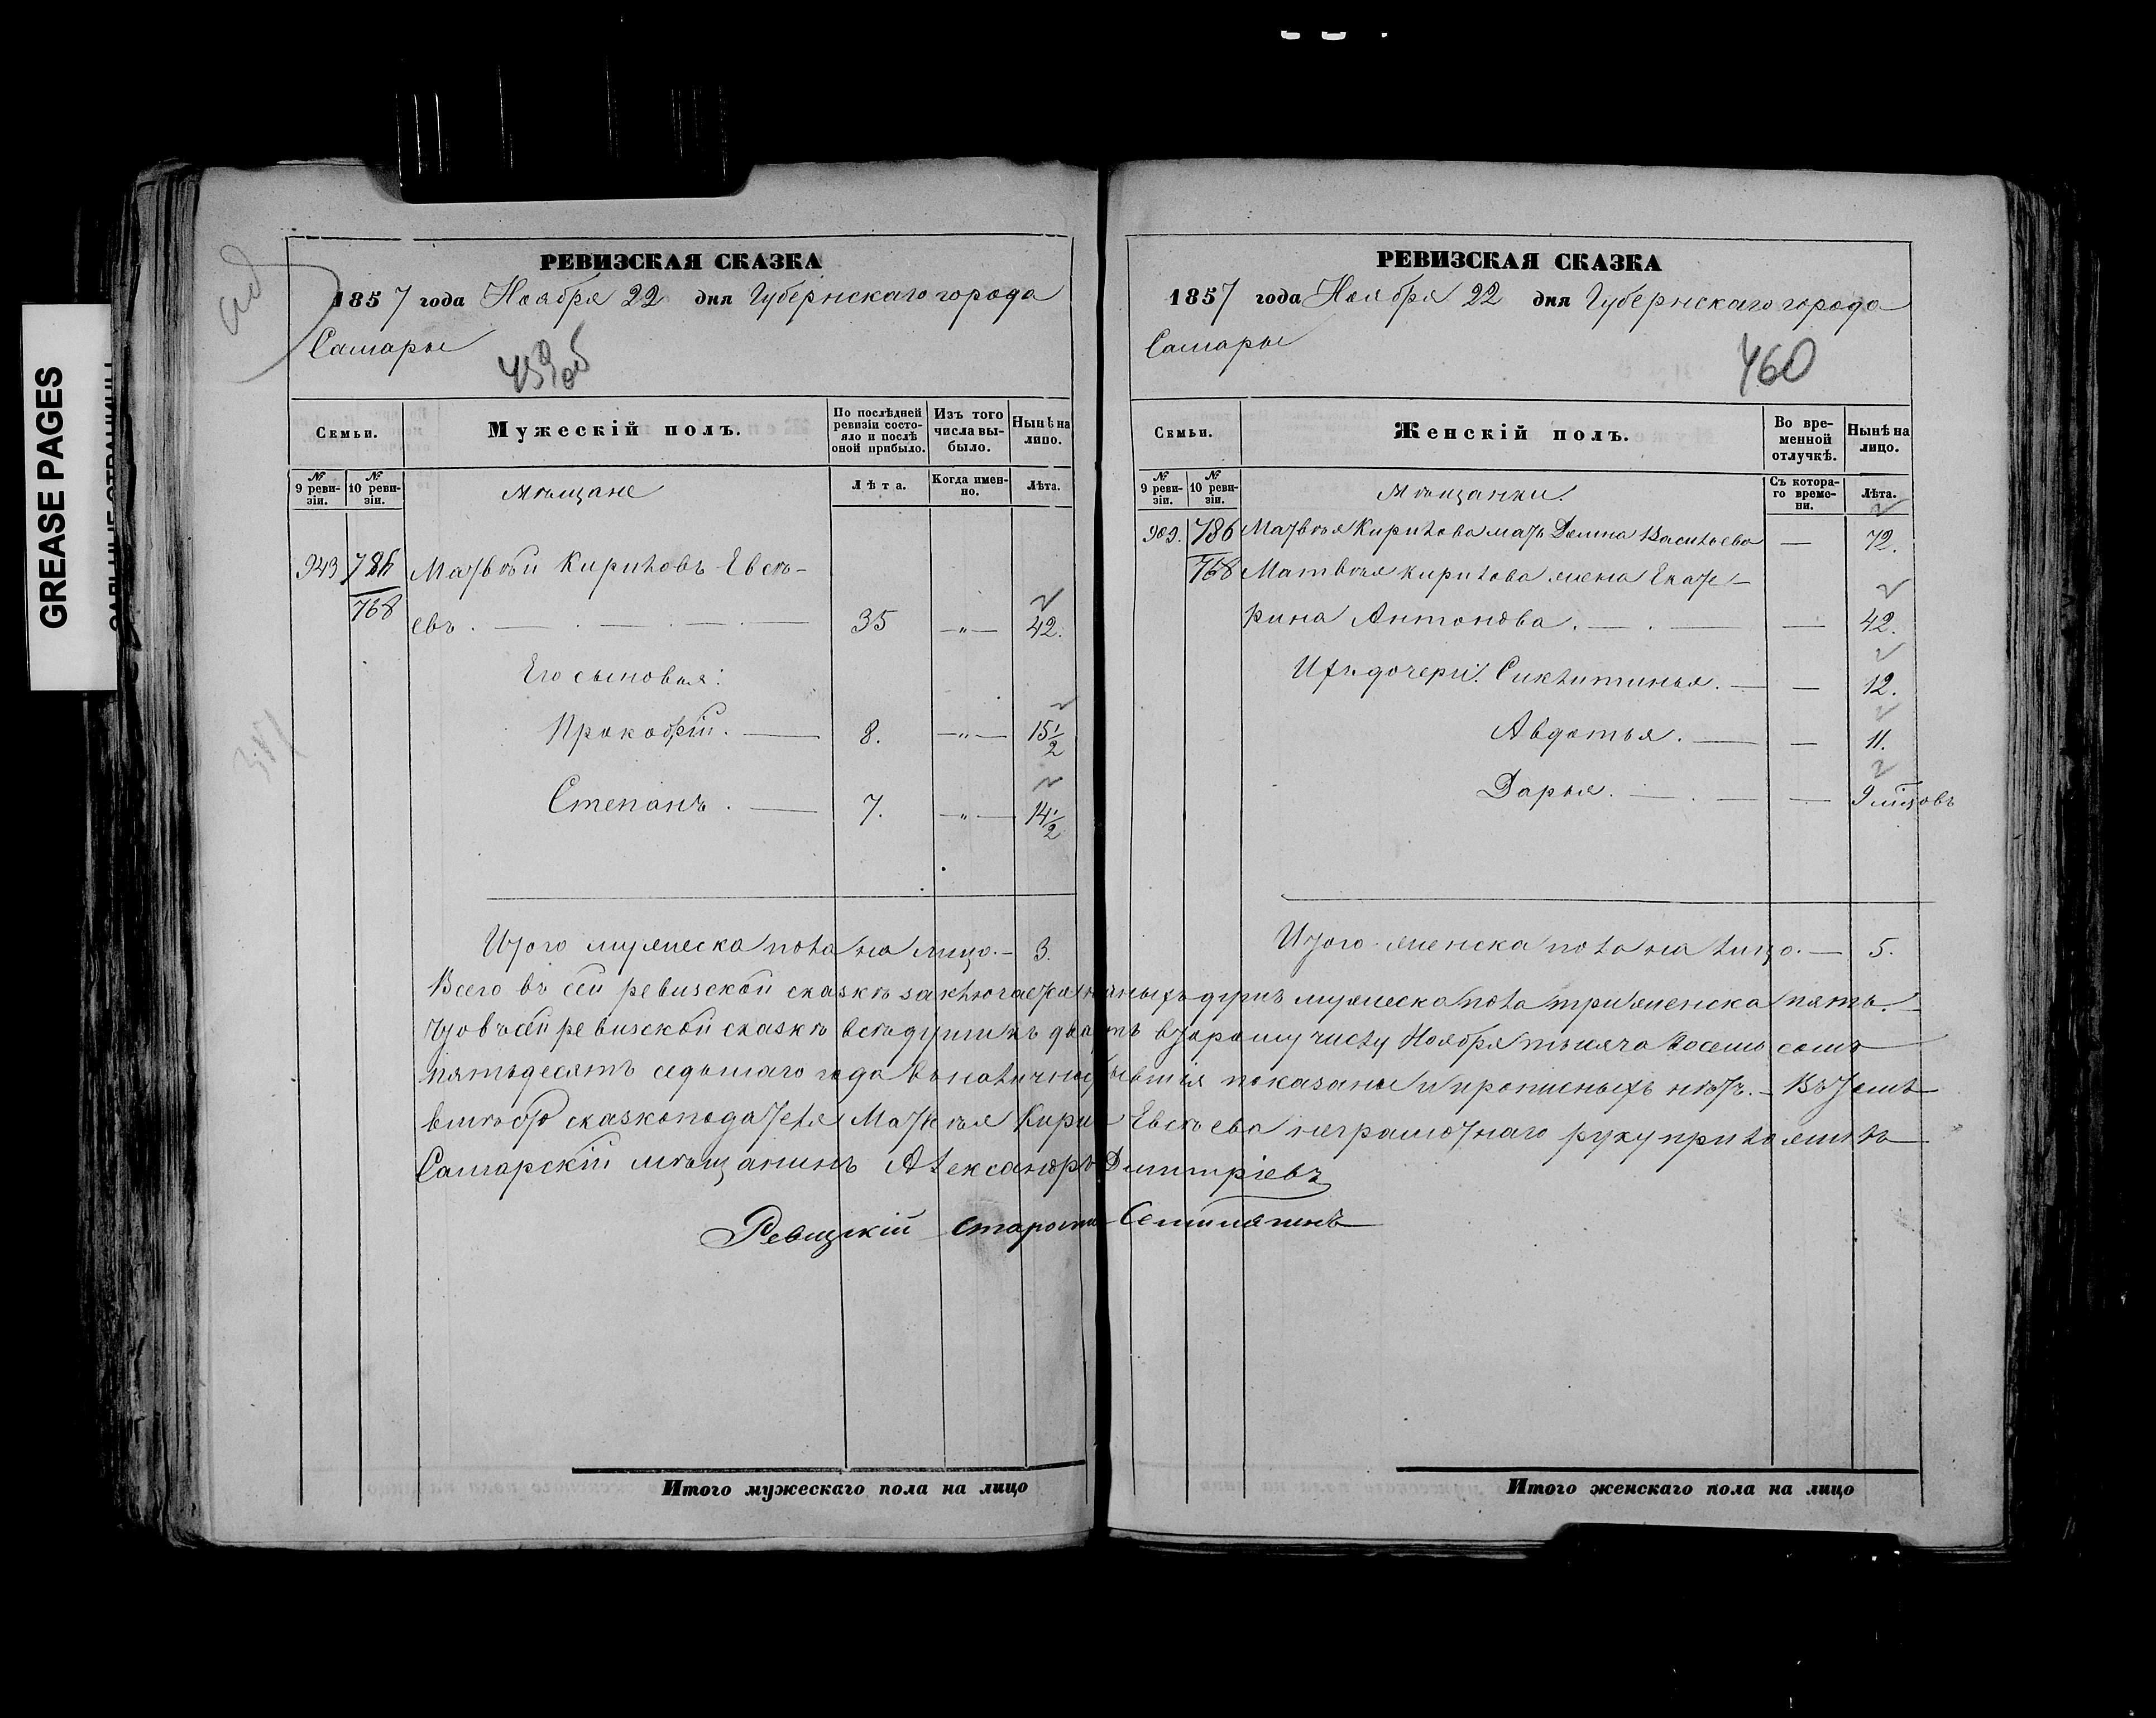 GREASE PAGES
РЕВИЗСКАЯ СКАЗКА
1857 года Ноября 22 дня Губернскаго города
Самары
459об
Семьи.
Мужескій полъ.
По послѣдней ревизіи состояло и послѣ оной прибыло.
Изъ того числа выбыло.
Нынѣ на лицо.
№ 9 ревизіи.
№ 10 ревизіи.
Мѣщане
Лѣта.
Когда именно.
Лѣта.
943 786 Матвѣй Кириловъ Евсѣ-
768
евъ. 35 —"— 42.
Его сыновья:
Прокофій. 8. —"— 15 1/2
Степанъ. 7. —"— 14 1/2
Итого мужеска пола на лицо. — 3.
РЕВИЗСКАЯ СКАЗКА
1857 года Ноября 22 дня Губернскаго города
Самары
460
Семьи.
Женскій полъ.
Во временной отлучкѣ.
Нынѣ на лицо.
№ 9 ревизіи.
№ 10 ревизіи.
Мѣщанки.
Съ котораго времени.
Лѣта.
786 Матвѣя Кирилова мать Васильева — 72.
768 Матвѣя Кирилова жена Екате-
рина Антонова. — 42.
Ихъ дочери: — 12.
Авдотья. — 11.
Дарья. — 9 мѣсяцовъ
Итого женска пола на лицо. — 5.
Всего въ сей ревизской сказкѣ заключается наличныхъ душъ мужеска пола три женска пять.
Что въ сей ревизской сказкѣ всѣ души къ двадцать второму числу Ноября тысяча восемь сотъ
пятьдесятъ седьмаго года въ наличности бывшія показаны и прописныхъ нѣтъ. — Въ томъ
вмѣсто сказкоподателя Матвѣя Кирил Евсѣева неграмотнаго руку приложилъ
Самарскій мѣщанинъ Александръ Димитріевъ
староста
Итого мужескаго пола на лицо
Итого женскаго пола на лицо